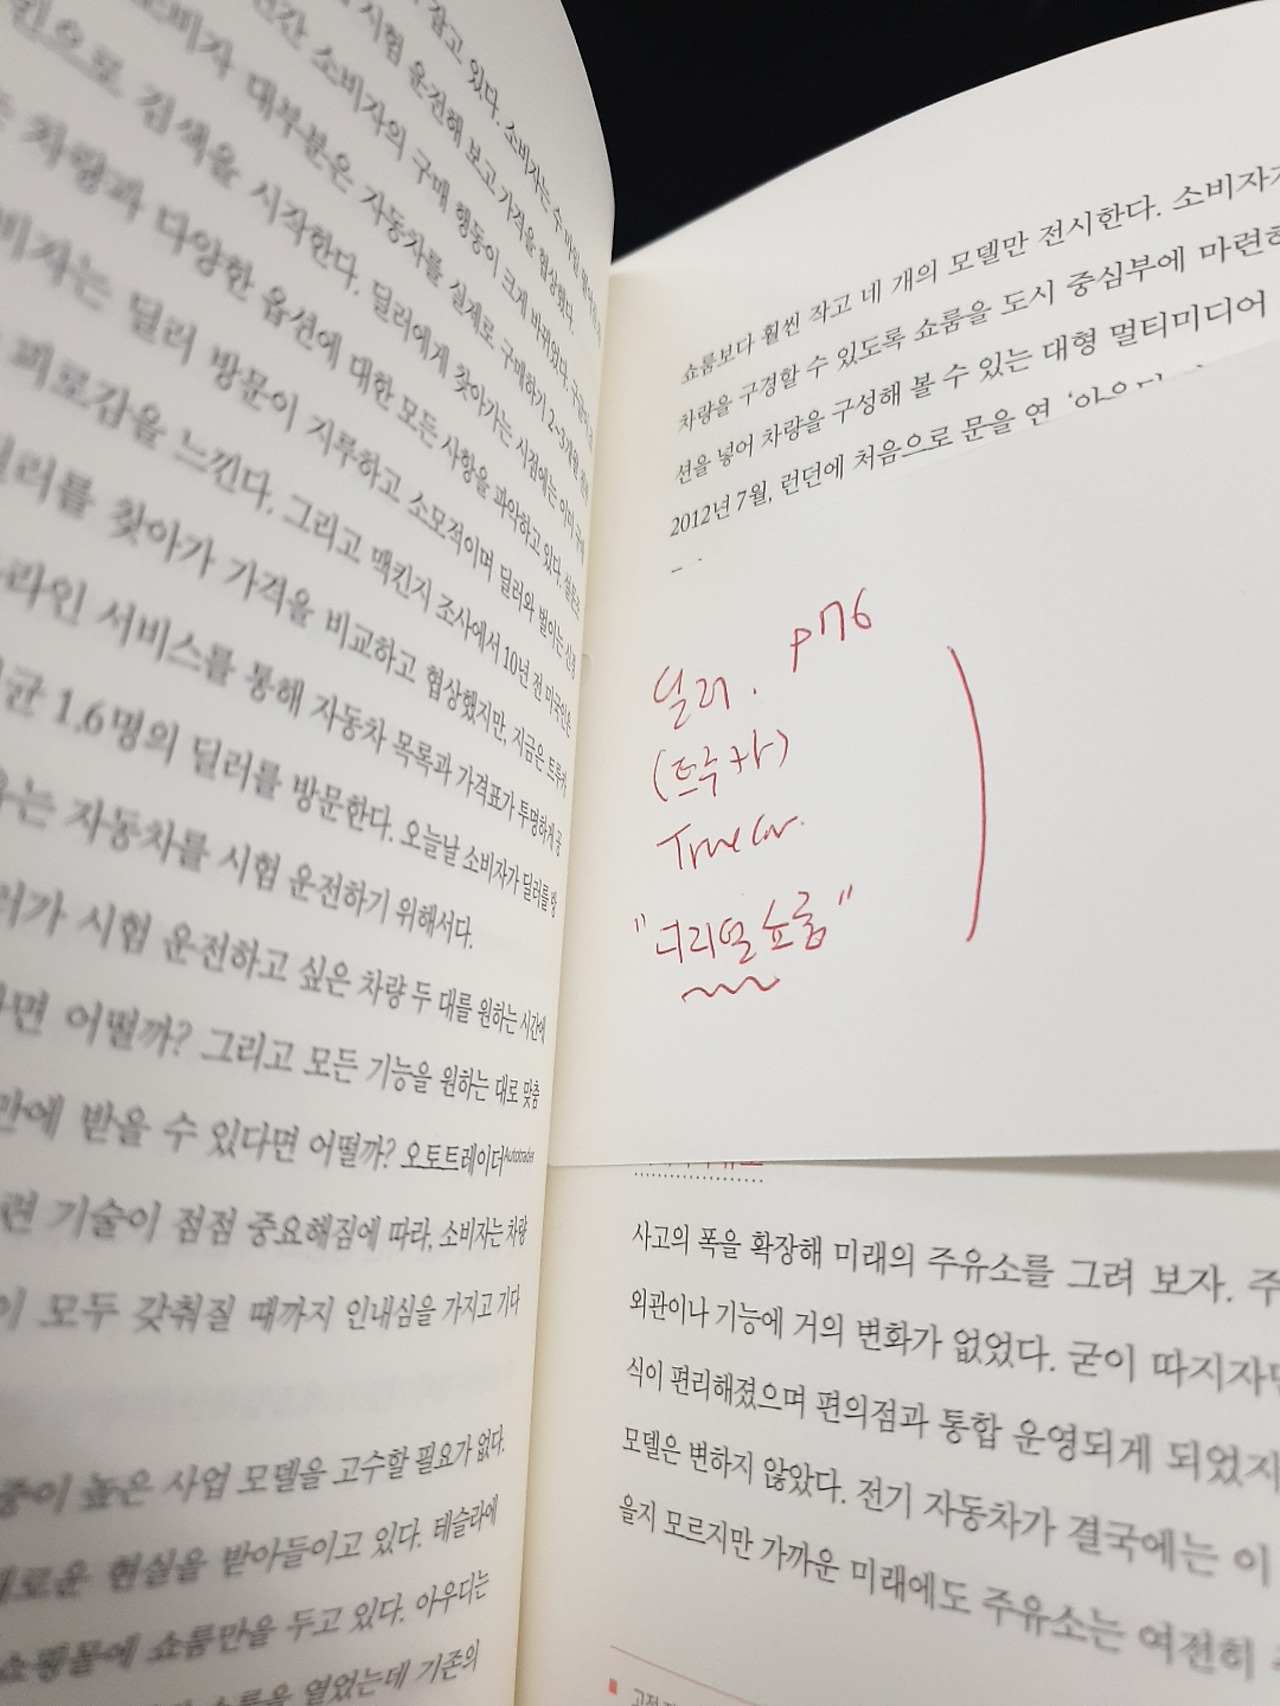 잡고 있다. 소비자는 수 마일
시험 운전해 보고 가격을 협상했다.
간 소비자의 구매 행동이 크게 바뀌었다.
소비자 대부분은 자동차를 실제로 구매하기 2~3개월
인으로 검색을 시작한다. 딜러에게 찾아가는 시점에는 이미
차량과 다양한 옵션에 대한 모든 사항을 파악하고 있다.
비자는 딜러 방문이 지루하고 소모적이며 딜러와 벌이는
피로감을 느낀다. 그리고 맥킨지 조사에서 10년 전 미국인은
딜러를 찾아가 가격을 비교하고 협상했지만, 지금은 트루카
라인 서비스를 통해 자동차 목록과 가격표가 투명하게 공
균 1.6명의 딜러를 방문한다. 오늘날 소비자가 딜러를 방
유는 자동차를 시험 운전하기 위해서다.
러가 시험 운전하고 싶은 차량 두 대를 원하는 시간에
면 어떨까? 그리고 모든 기능을 원하는 대로 맞춤
만에 받을 수 있다면 어떨까? 오토트레이더Autotrader
련 기술이 점점 중요해짐에 따라, 소비자는 차량
이 모두 갖춰질 때까지 인내심을 가지고 기다
중이 높은 사업 모델을 고수할 필요가 없다.
새로운 현실을 받아들이고 있다. 테슬라에
쇼핑몰에 쇼룸만을 두고 있다. 아우디는
쇼룸을 열었는데 기존의
쇼룸보다 훨씬 작고 네 개의 모델만 전시한다. 소비자가
차량을 구경할 수 있도록 쇼룸을 도시 중심부에 마련하
션을 넣어 차량을 구성해 볼 수 있는 대형 멀티미디어
2012년 7월, 런던에 처음으로 문을 연 '아우디
딜러. p176
(트루카)
True Car.
"디리얼 쇼룸"
사고의 폭을 확장해 미래의 주유소를 그려 보자. 주
외관이나 기능에 거의 변화가 없었다. 굳이 따지자면
식이 편리해졌으며 편의점과 통합 운영되게 되었지
모델은 변하지 않았다. 전기 자동차가 결국에는 이
을지 모르지만 가까운 미래에도 주유소는 여전히